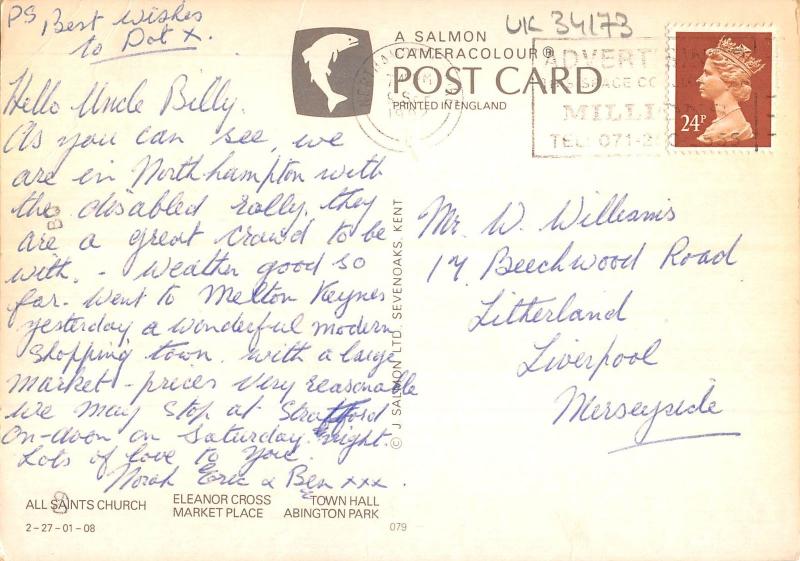 PS, Best Wishes
to Dot x.
Hello Uncle Billy.
As you can see, we
are in Northampton with
the disabled rally, they
are a great crowd to be
with. - Weather good so
far. Went to Melton Keynes
yesterday a wonderful modern
shopping town. with a large
market - prices very reasonable
we may stop at Stratford
on-Avon on Saturday night.
Lots of love to you.
Norah Eric & Ben xxx.
ALL SAINTS CHURCH
ELEANOR CROSS
MARKET PLACE
TOWN HALL
ABINGTON PARK
2-27-01-08
079
A SALMON
CAMERACOLOUR®
POST CARD
PRINTED IN ENGLAND
© J SALMON LTD. SEVENOAKS, KENT
UK 34173
ADVERT
MILLI
TEL: 071-2
24P
Mr. W. Williams
17 Beechwood Road
Litherland
Liverpool
Merseyside